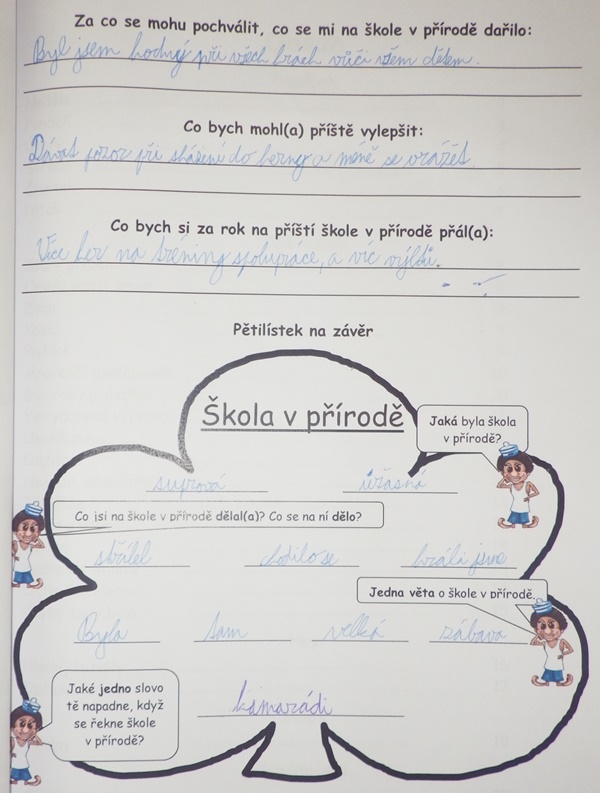 Za co se mohu pochválit, co se mi na škole v přírodě dařilo:
Byl jsem hodný při všech hrách vůči všem dětem.
Co bych mohl(a) příště vylepšit:
Dávat pozor při sházení do a méně se urážet
Co bych si za rok na příští škole v přírodě přál(a):
Více her na tréning spolupráce, a víc výletů.
Pětilístek na závěr
Škola v přírodě
Jaká byla škola
v přírodě?
suprová úžasná
Co jsi na škole v přírodě dělal(a)? Co se na ní dělo?
střílel chodilo se hráli jsme
Jedna věta o škole v přírodě.
Byla tam velká zábava
Jaké jedno slovo
tě napadne, když
se řekne škole
v přírodě?
kamarádi